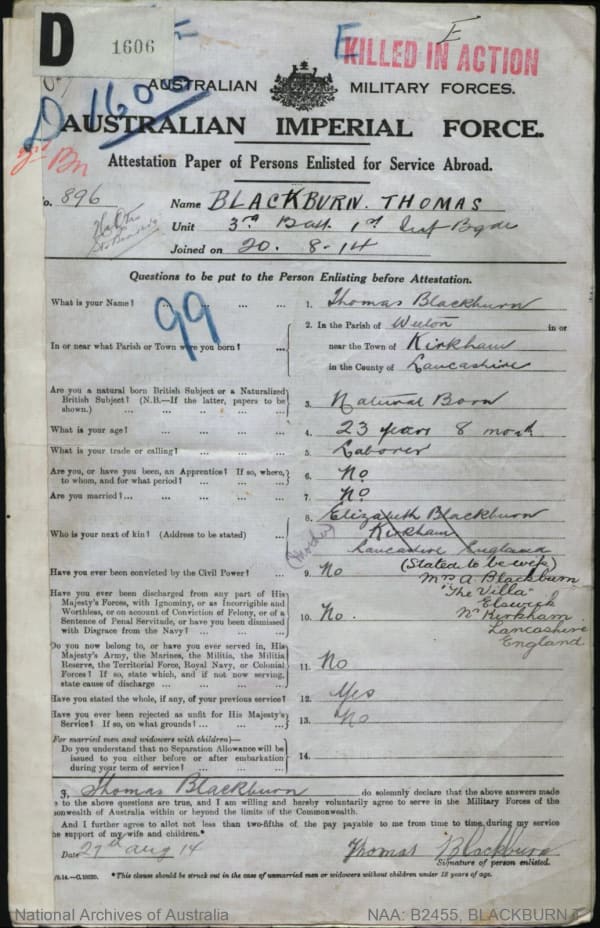 D
1606
E
E
KILLED IN ACTION
AUSTRALIAN MILITARY FORCES.
D 1606
AUSTRALIAN IMPERIAL FORCE.
Attestation Paper of Persons Enlisted for Service Abroad.
3rd Bn
No. 896
Name BLACKBURN. THOMAS
Unit 3rd Batt 1st Inf Bgde
Joined on 20. 8-14
Questions to be put to the Person Enlisting before Attestation.
99
What is your Name? ... ... ... 1. Thomas Blackburn
In or near what Parish or Town were you born? ... 2. In the Parish of Weeton in or
near the Town of Kirkham
in the County of Lancashire
Are you a natural born British Subject or a Naturalized
British Subject? (N.B.—If the latter, papers to be
shown.) ... ... ... ... ... 3. Natural Born
What is your age? ... ... ... ... 4. 23 years 8 month
What is your trade or calling? ... ... ... 5. Laborer
Are you, or have you been, an Apprentice? If so, where,
to whom, and for what period? ... ... ... 6. No
Are you married? ... ... ... ... ... 7. No
Who is your next of kin? (Address to be stated) ... 8. Elizabeth Blackburn
(Mother) Kirkham
Lancashire England
(Stated to be wife)
Mrs A Blackburn
"The Villa"
Elswick
Nr Kirkham
Lancashire
England
Have you ever been convicted by the Civil Power? ... 9. No
Have you ever been discharged from any part of His
Majesty's Forces, with Ignominy, or as Incorrigible and
Worthless, or on account of Conviction of Felony, or of a
Sentence of Penal Servitude, or have you been dismissed
with Disgrace from the Navy? ... ... ... 10. No.
Do you now belong to, or have you ever served in, His
Majesty's Army, the Marines, the Militia, the Militia
Reserve, the Territorial Force, Royal Navy, or Colonial
Forces? If so, state which, and if not now serving,
state cause of discharge ... ... ... ... 11. No
Have you stated the whole, if any, of your previous service? 12. Yes
Have you ever been rejected as unfit for His Majesty's
Service? If so, on what grounds? ... ... ... 13. No
(For married men and widowers with children)—
Do you understand that no Separation Allowance will be
issued to you either before or after embarkation
during your term of service? ... ... ... 14.
3, Thomas Blackburn do solemnly declare that the above answers made
e to the above questions are true, and I am willing and hereby voluntarily agree to serve in the Military Forces of the
onwealth of Australia within or beyond the limits of the Commonwealth.
And I further agree to allot not less than two-fifths of the pay payable to me from time to time during my service
he support of my wife and children.*
Date 27th Aug 14 Thomas Blackburn
Signature of person enlisted.
8/9.14.—C.10020. *This clause should be struck out in the case of unmarried men or widowers without children under 18 years of age.
National Archives of Australia NAA: B2455, BLACKBURN T